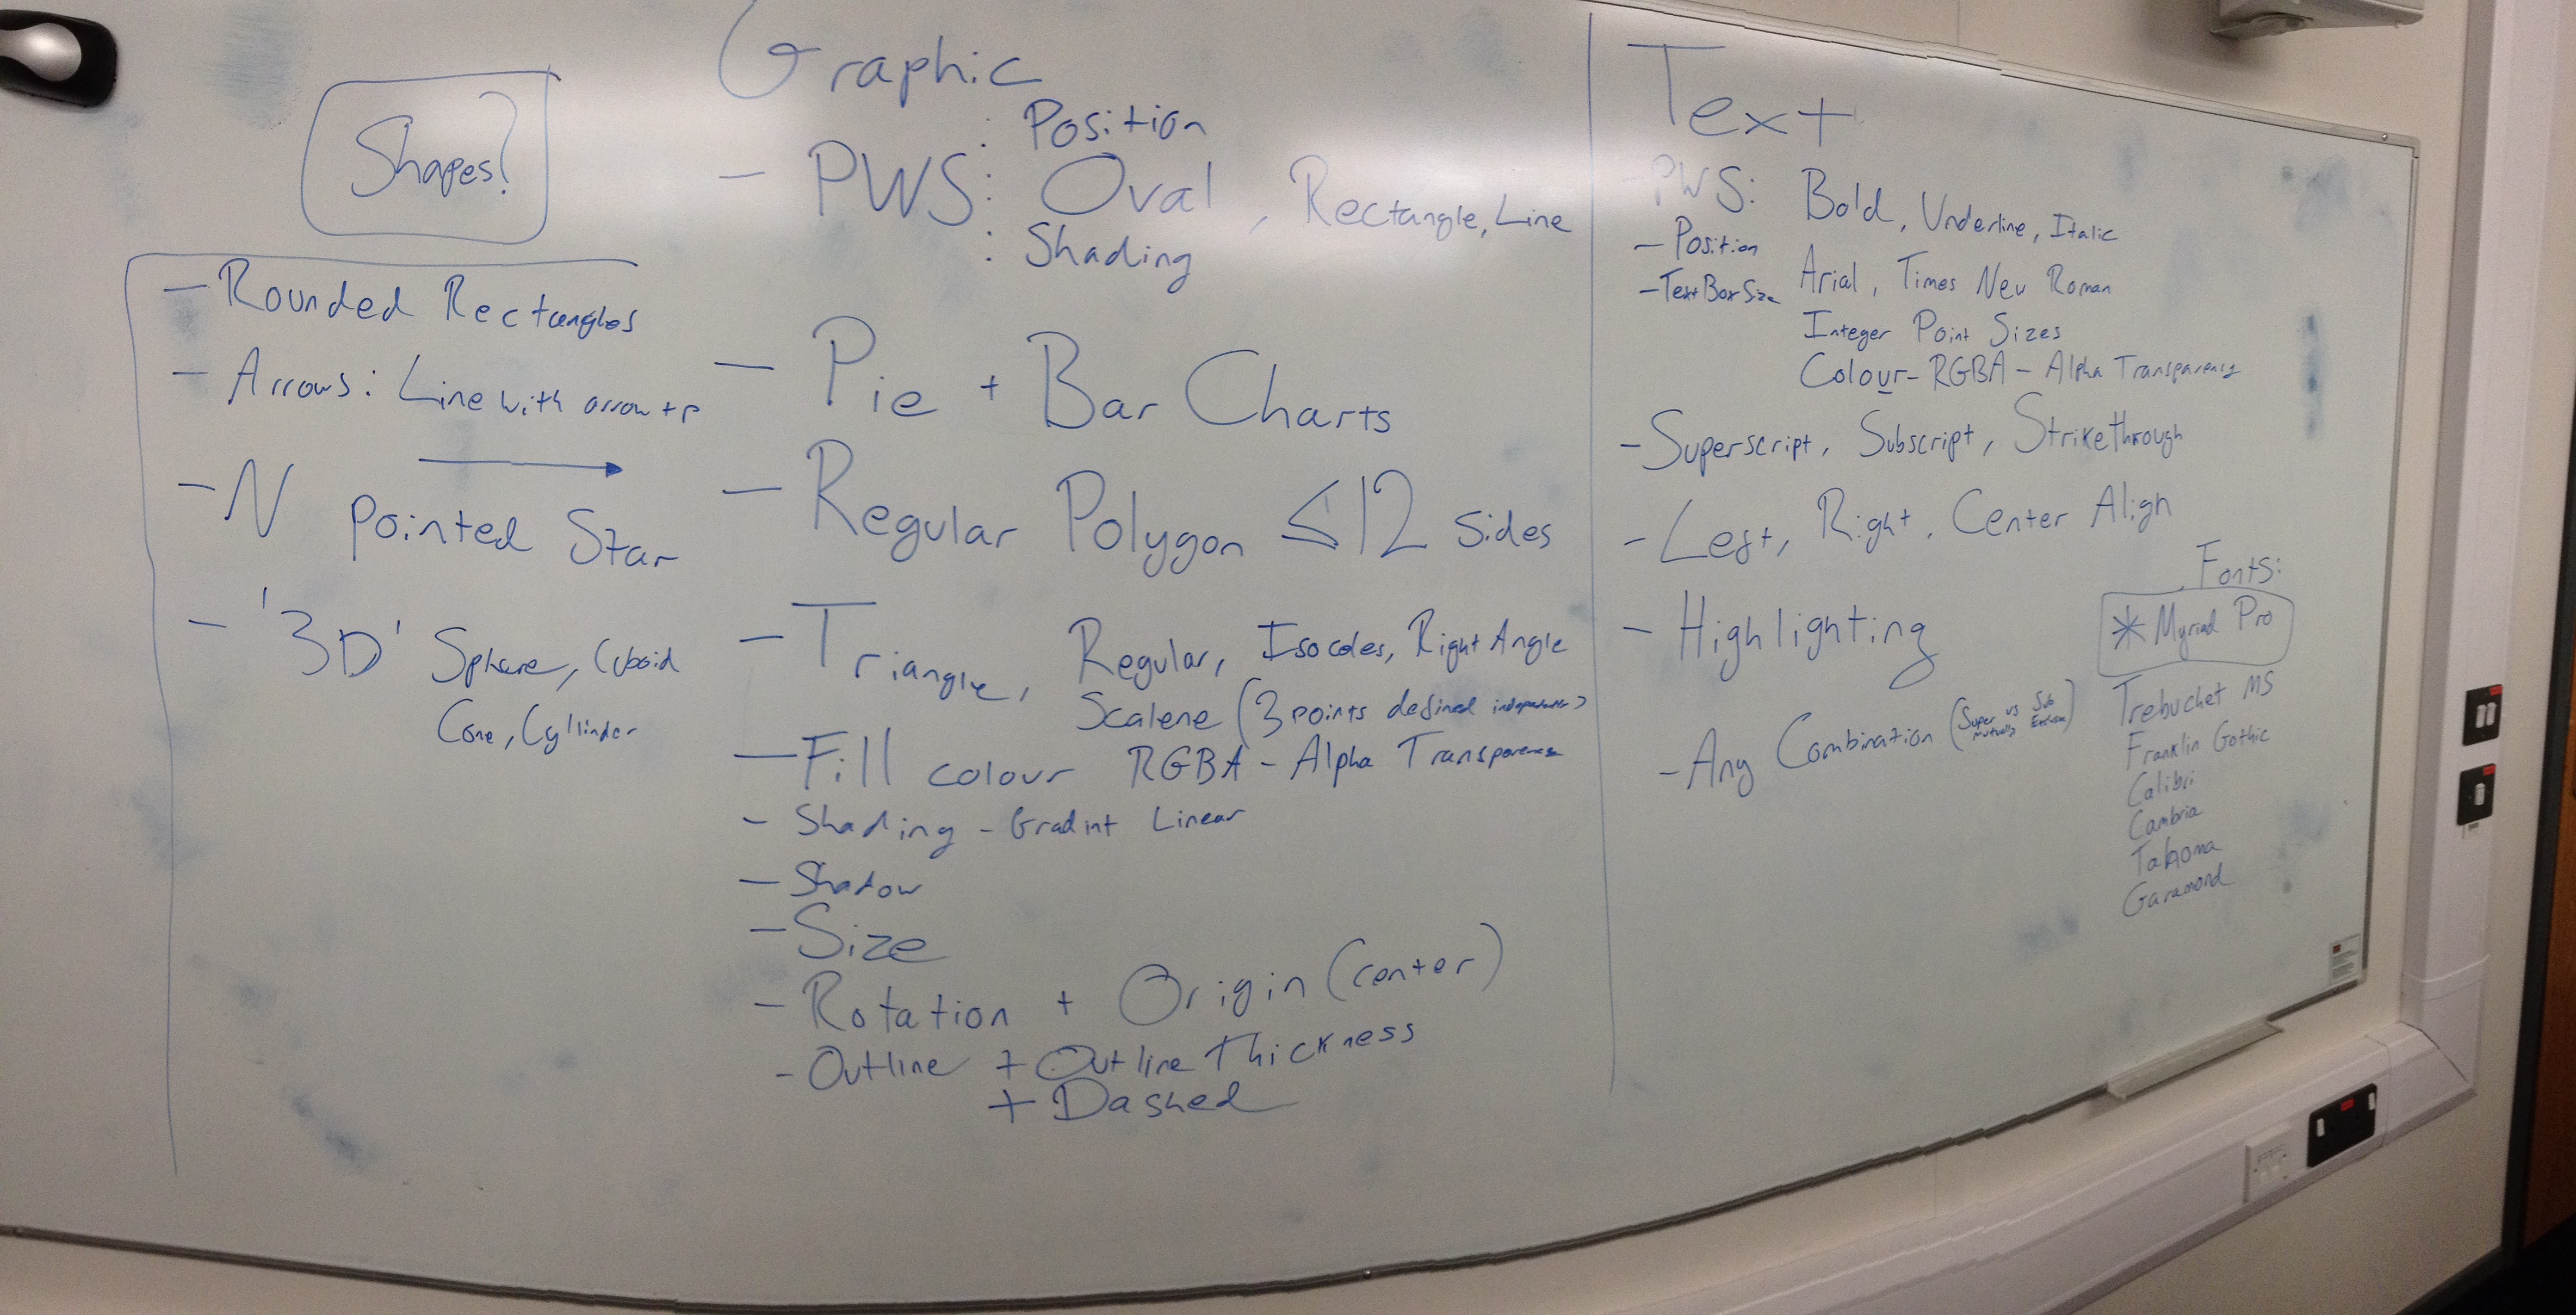 Shapes?
- Rounded Rectangles
- Arrows: Line with arrow
- N pointed Star
- '3D' Sphere, Cuboid
Cone, Cyllinder
Graphic
: Position
- PWS: Oval, Rectangle, Line
: Shading
- Pie + Bar Charts
- Regular Polygon ≤12 Sides
- Triangle, Regular, Isocoles, Right Angle
Scalene (3 points defined
- Fill colour RGBA - Alpha Transparency
- Shading - Gradint Linear
- Shadow
- Size
- Rotation + Origin (center)
- Outline + Outline Thickness
+ Dashed
Text
- PWS: Bold, Underline, Italic
- Position
- Text Box Size
Arial, Times New Roman
Integer Point Sizes
Colour - RGBA - Alpha Transparency
- Superscript, Subscript, Strikethrough
- Left, Right, Center Align
- Highlighting
- Any Combination (Super vs Sub
Mutually
Fonts:
* Myriad Pro
Trebuchet MS
Franklin Gothic
Calibri
Cambria
Tahoma
Garamond